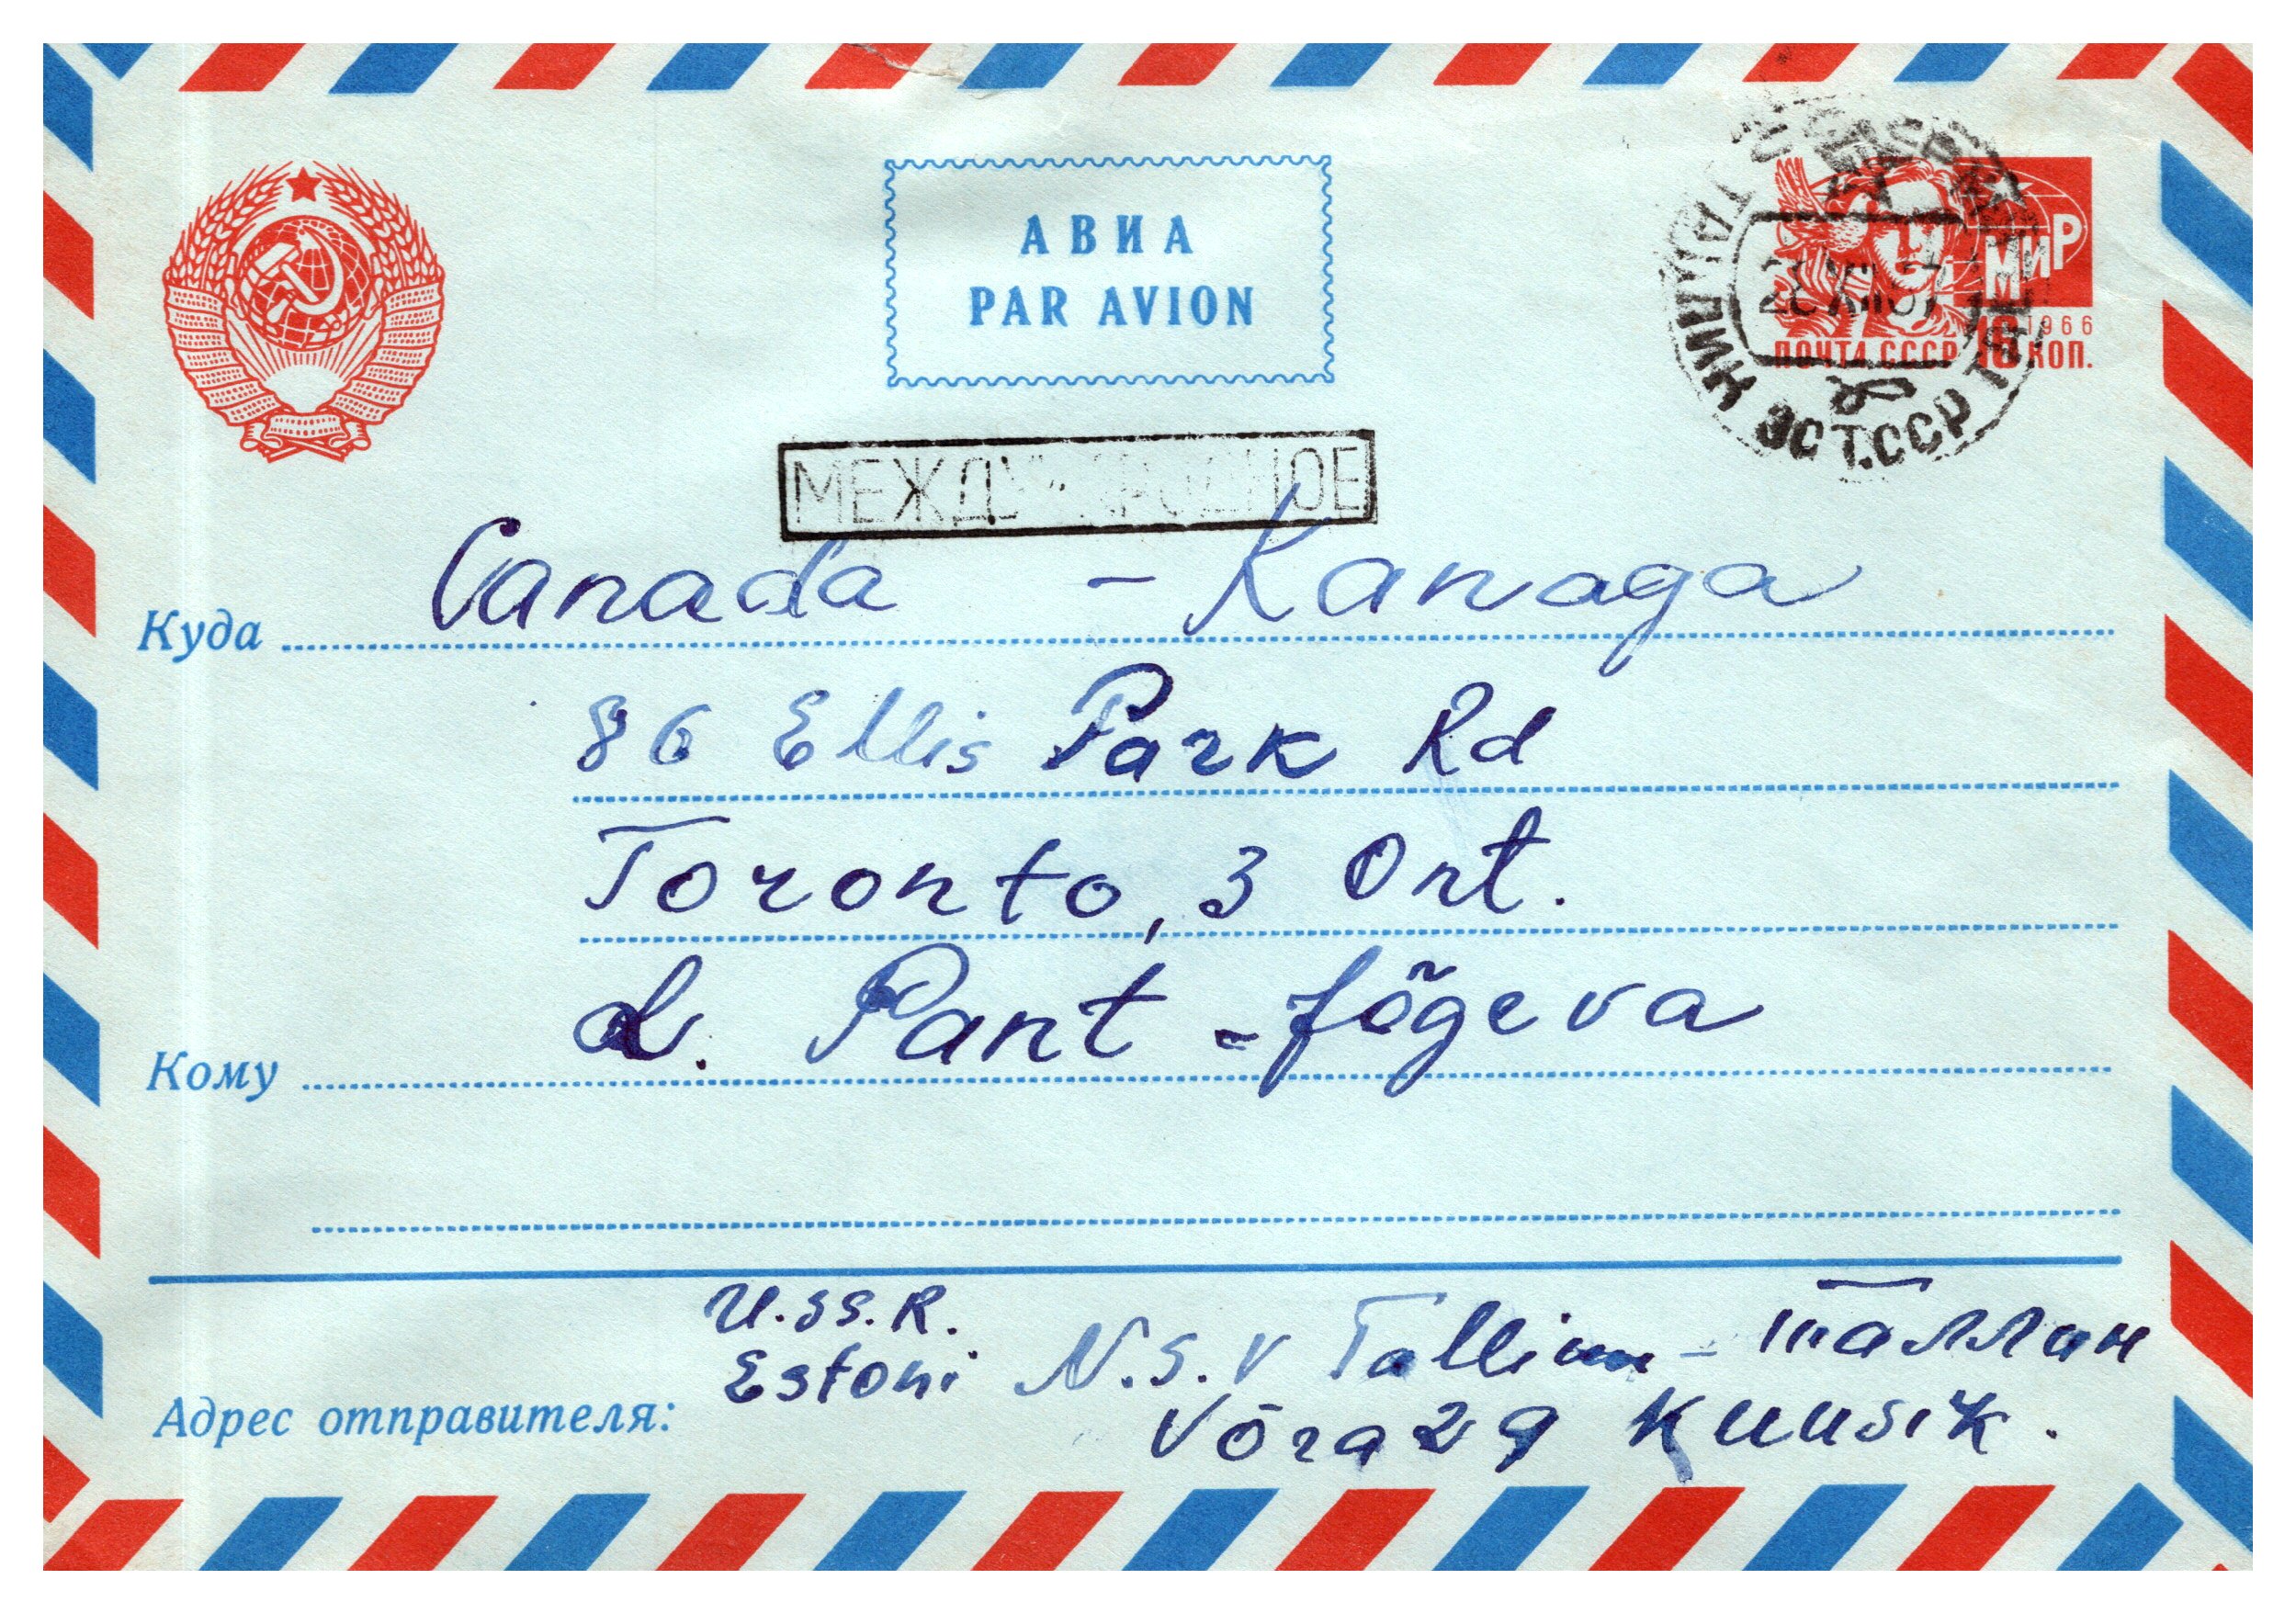 АВИА
PAR AVION
МИР
1966
ПОЧТА СССР 16 КОП.
ТАЛЛИН
ЭСТ.ССР
МЕЖДУНАРОДНОЕ
Canada - Канада
Куда
86 Ellis Park Rd
Toronto, 3 Ont.
L. Pant - Jõgeva
Кому
U.SS.R.
Estoni N.S.V Tallinn - Таллан
Адрес отправителя:
Võra 29 Kuusik.